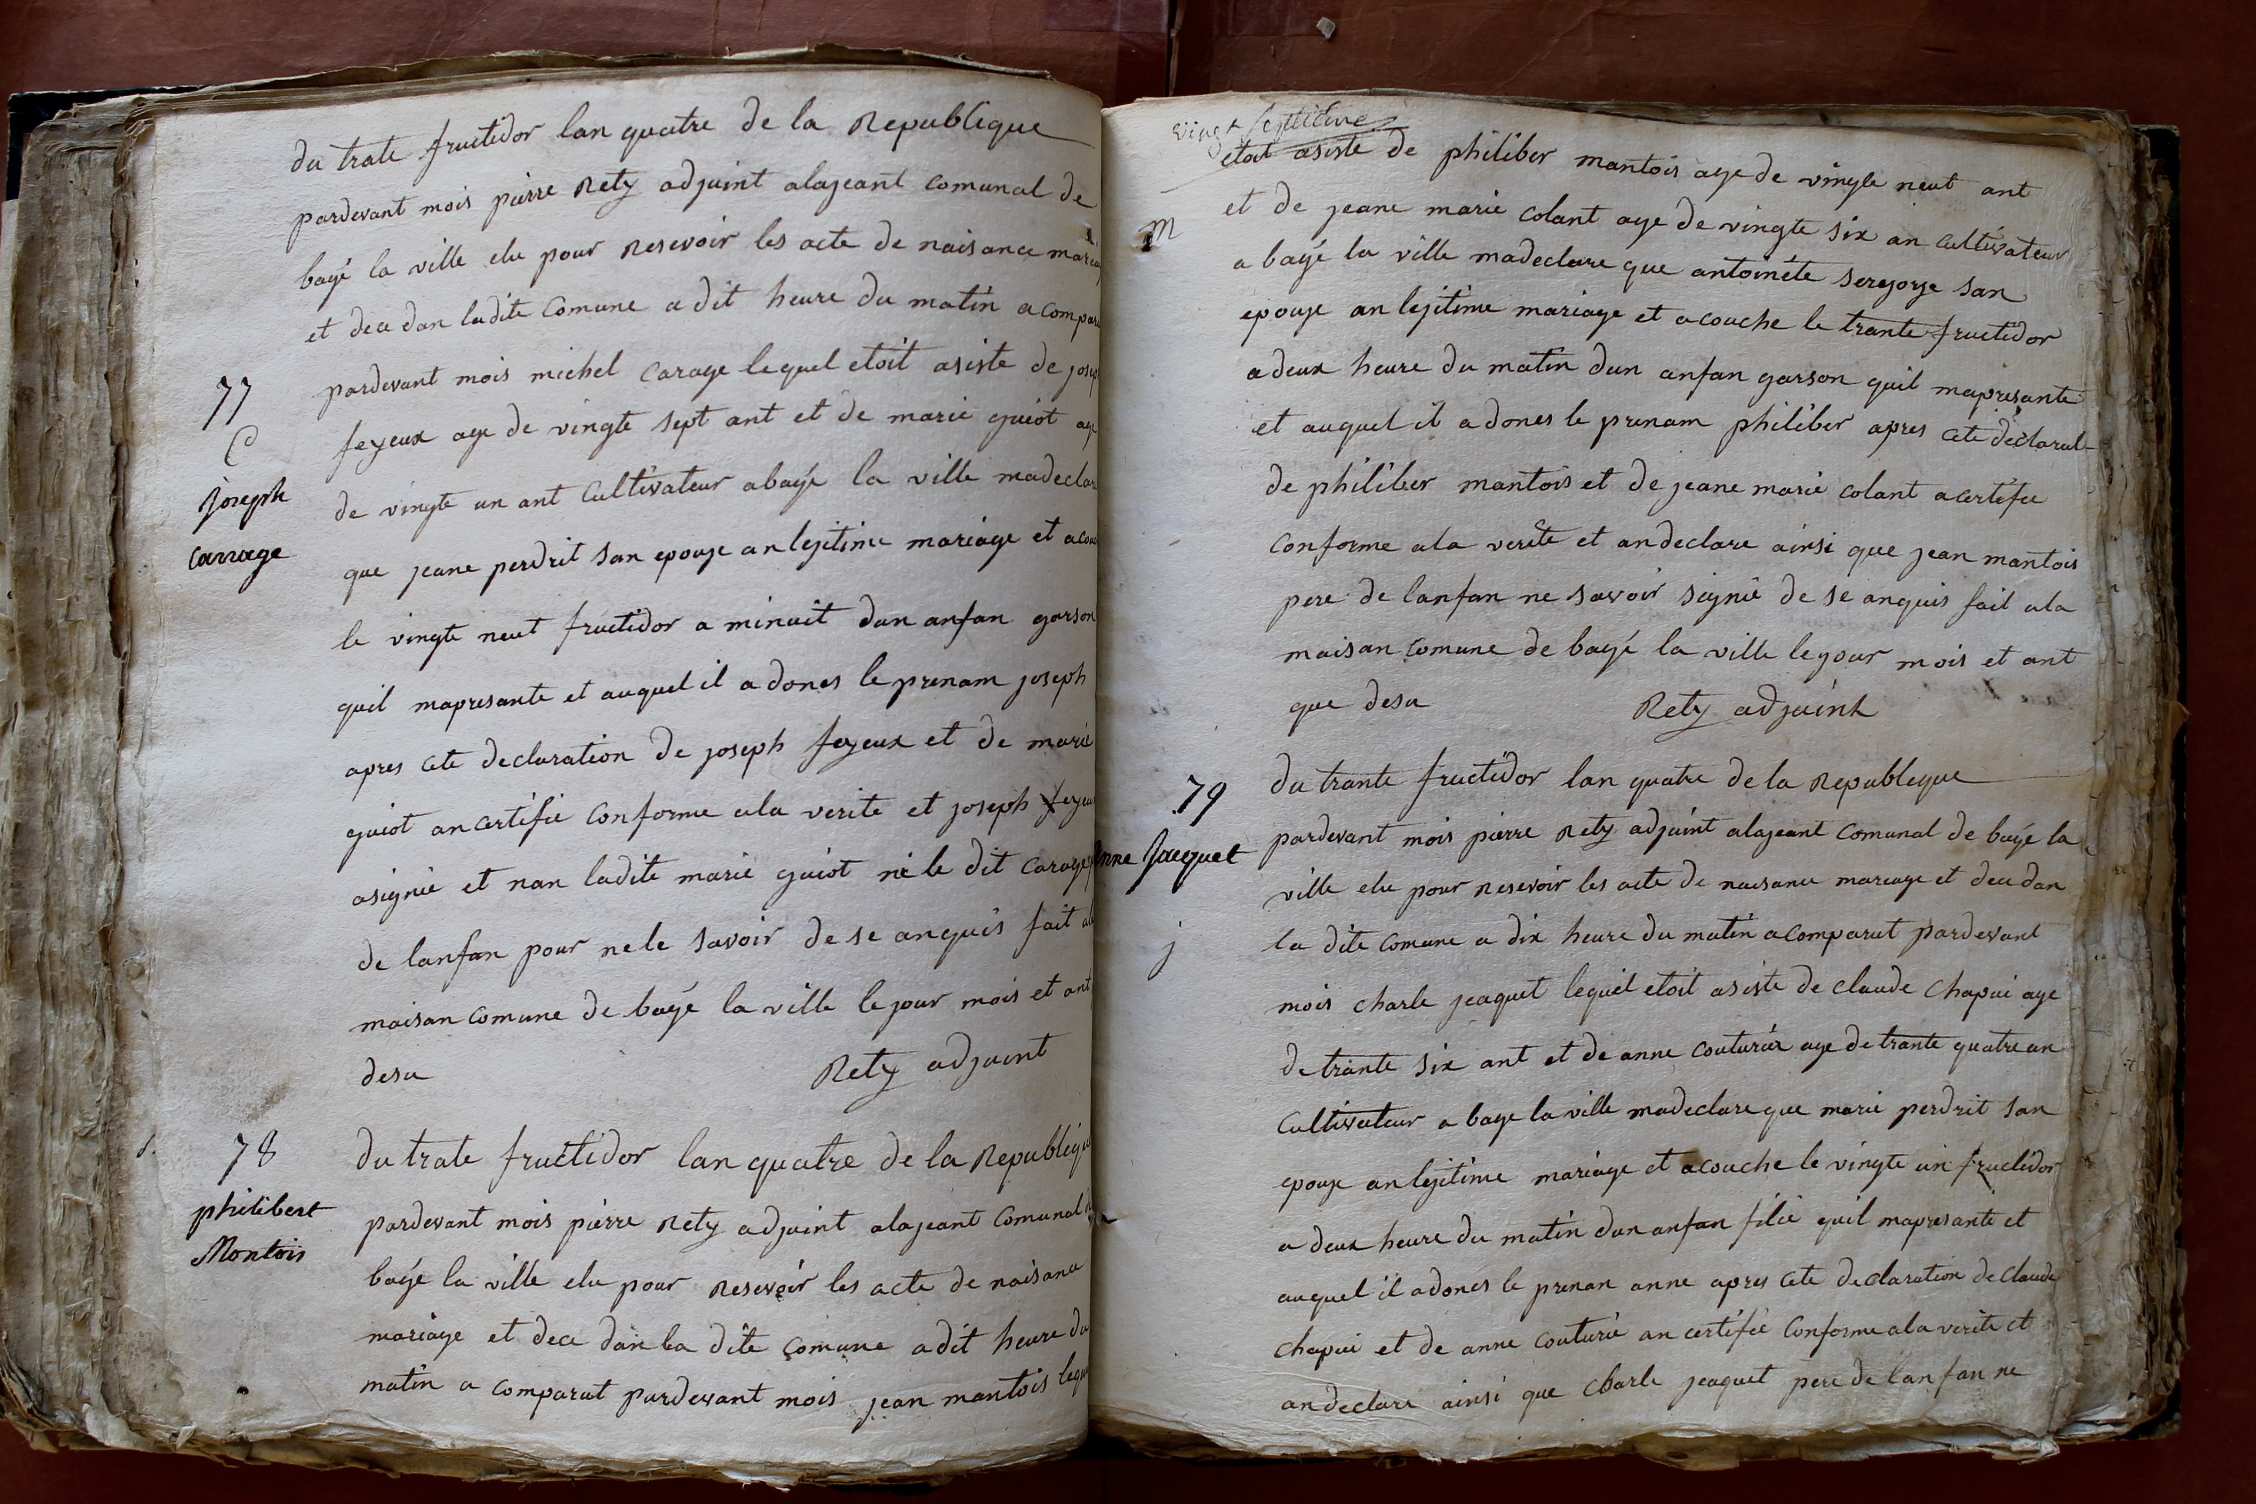 du trate fructidor lan quatre de la Republique
pardevant mois pierre Rety adjuint alajeant comunal de
bayé la ville elu pour Resevoir les acte de naisance mareag
et dea dan ladite Comune a dit heure du matin a compar
77
pardevant mois michel Carage lequel etoit asiste de josep
C
feyeux age de vingte sept ant et de marie guiot age
Joseph
de vingte un ant Cultivateur abayé la ville madeclar
Carrage
que jeane perdrit san epouse an lejitime mariage et acou
le vingte neut fructidor a minuit dun anfan garson
quil mapresante et auquel il a dones le prenam joseph
apres cete declaration de joseph feyeux et de marie
guiot ancertifie Conforme ala verite et joseph feyeu
asignie et nan ladite marie guiot ni le dit Carage
de lanfan pour ne le savoir de se anquis fait al
maisan comune de bayé la ville le jour mois et ant
desu
Rety adjuint
78
du trate fructidor lan quatre de la Republiqu
philibert
Montois
pardevant mois pierre Rety adjuint alajeant Comunal d
bayé la ville elu pour Resevoir les acte de naisance
mariage et dea dan la dite Comune a dit heure du
matin a comparut pardevant mois jean mantois lequ
vingt septieme
etoit asiste de philiber mantois age de vingte neut ant
M
et de jeane marie colant age de vingte six an cultivateur
a bayé la ville madeclare que antoinete serejorje san
epouse an lejitime mariage et acouche le trante fructidor
a deux heure du matin dun anfan garson quil mapresante
et auquel il a dones le prenam philiber apres cete déclarat-
de philiber mantois et de jeane marie colant acertifie
conforme ala verite et andeclare ainsi que jean mantois
pere de lanfan ne savoir signié de se anquis fait ala
maisan comune de bayé la ville lejour mois et ant
que desu
Rety adjuint
79
du trante fructidor lan quatre de la Republeque
pardevant mois pierre Rety adjuint alajeant Comunal de bayé la
anne Jacquet
ville elu pour Resevoir les acte de naisance mareage et dea dan
j
la dite comune a dix heure du matin acomparut pardevant
mois charle jeaquet lequel etoit asiste de claude Chapui age
de trante six ant et de anne couturier age de trante quatre an
Cultivateur a baye la ville madeclare que marie perdrit san
epouse an lejitime mariage et acouche le vingte un fructidor
a deux heure du matin dun anfan filie quil mapresante et
auquel il a dones le prenan anne apres cete declaration de Claude
chapui et de anne couturie an certifie Conforme ala verite et
andeclare ainsi que Charle jeaquet pere de lanfan ne